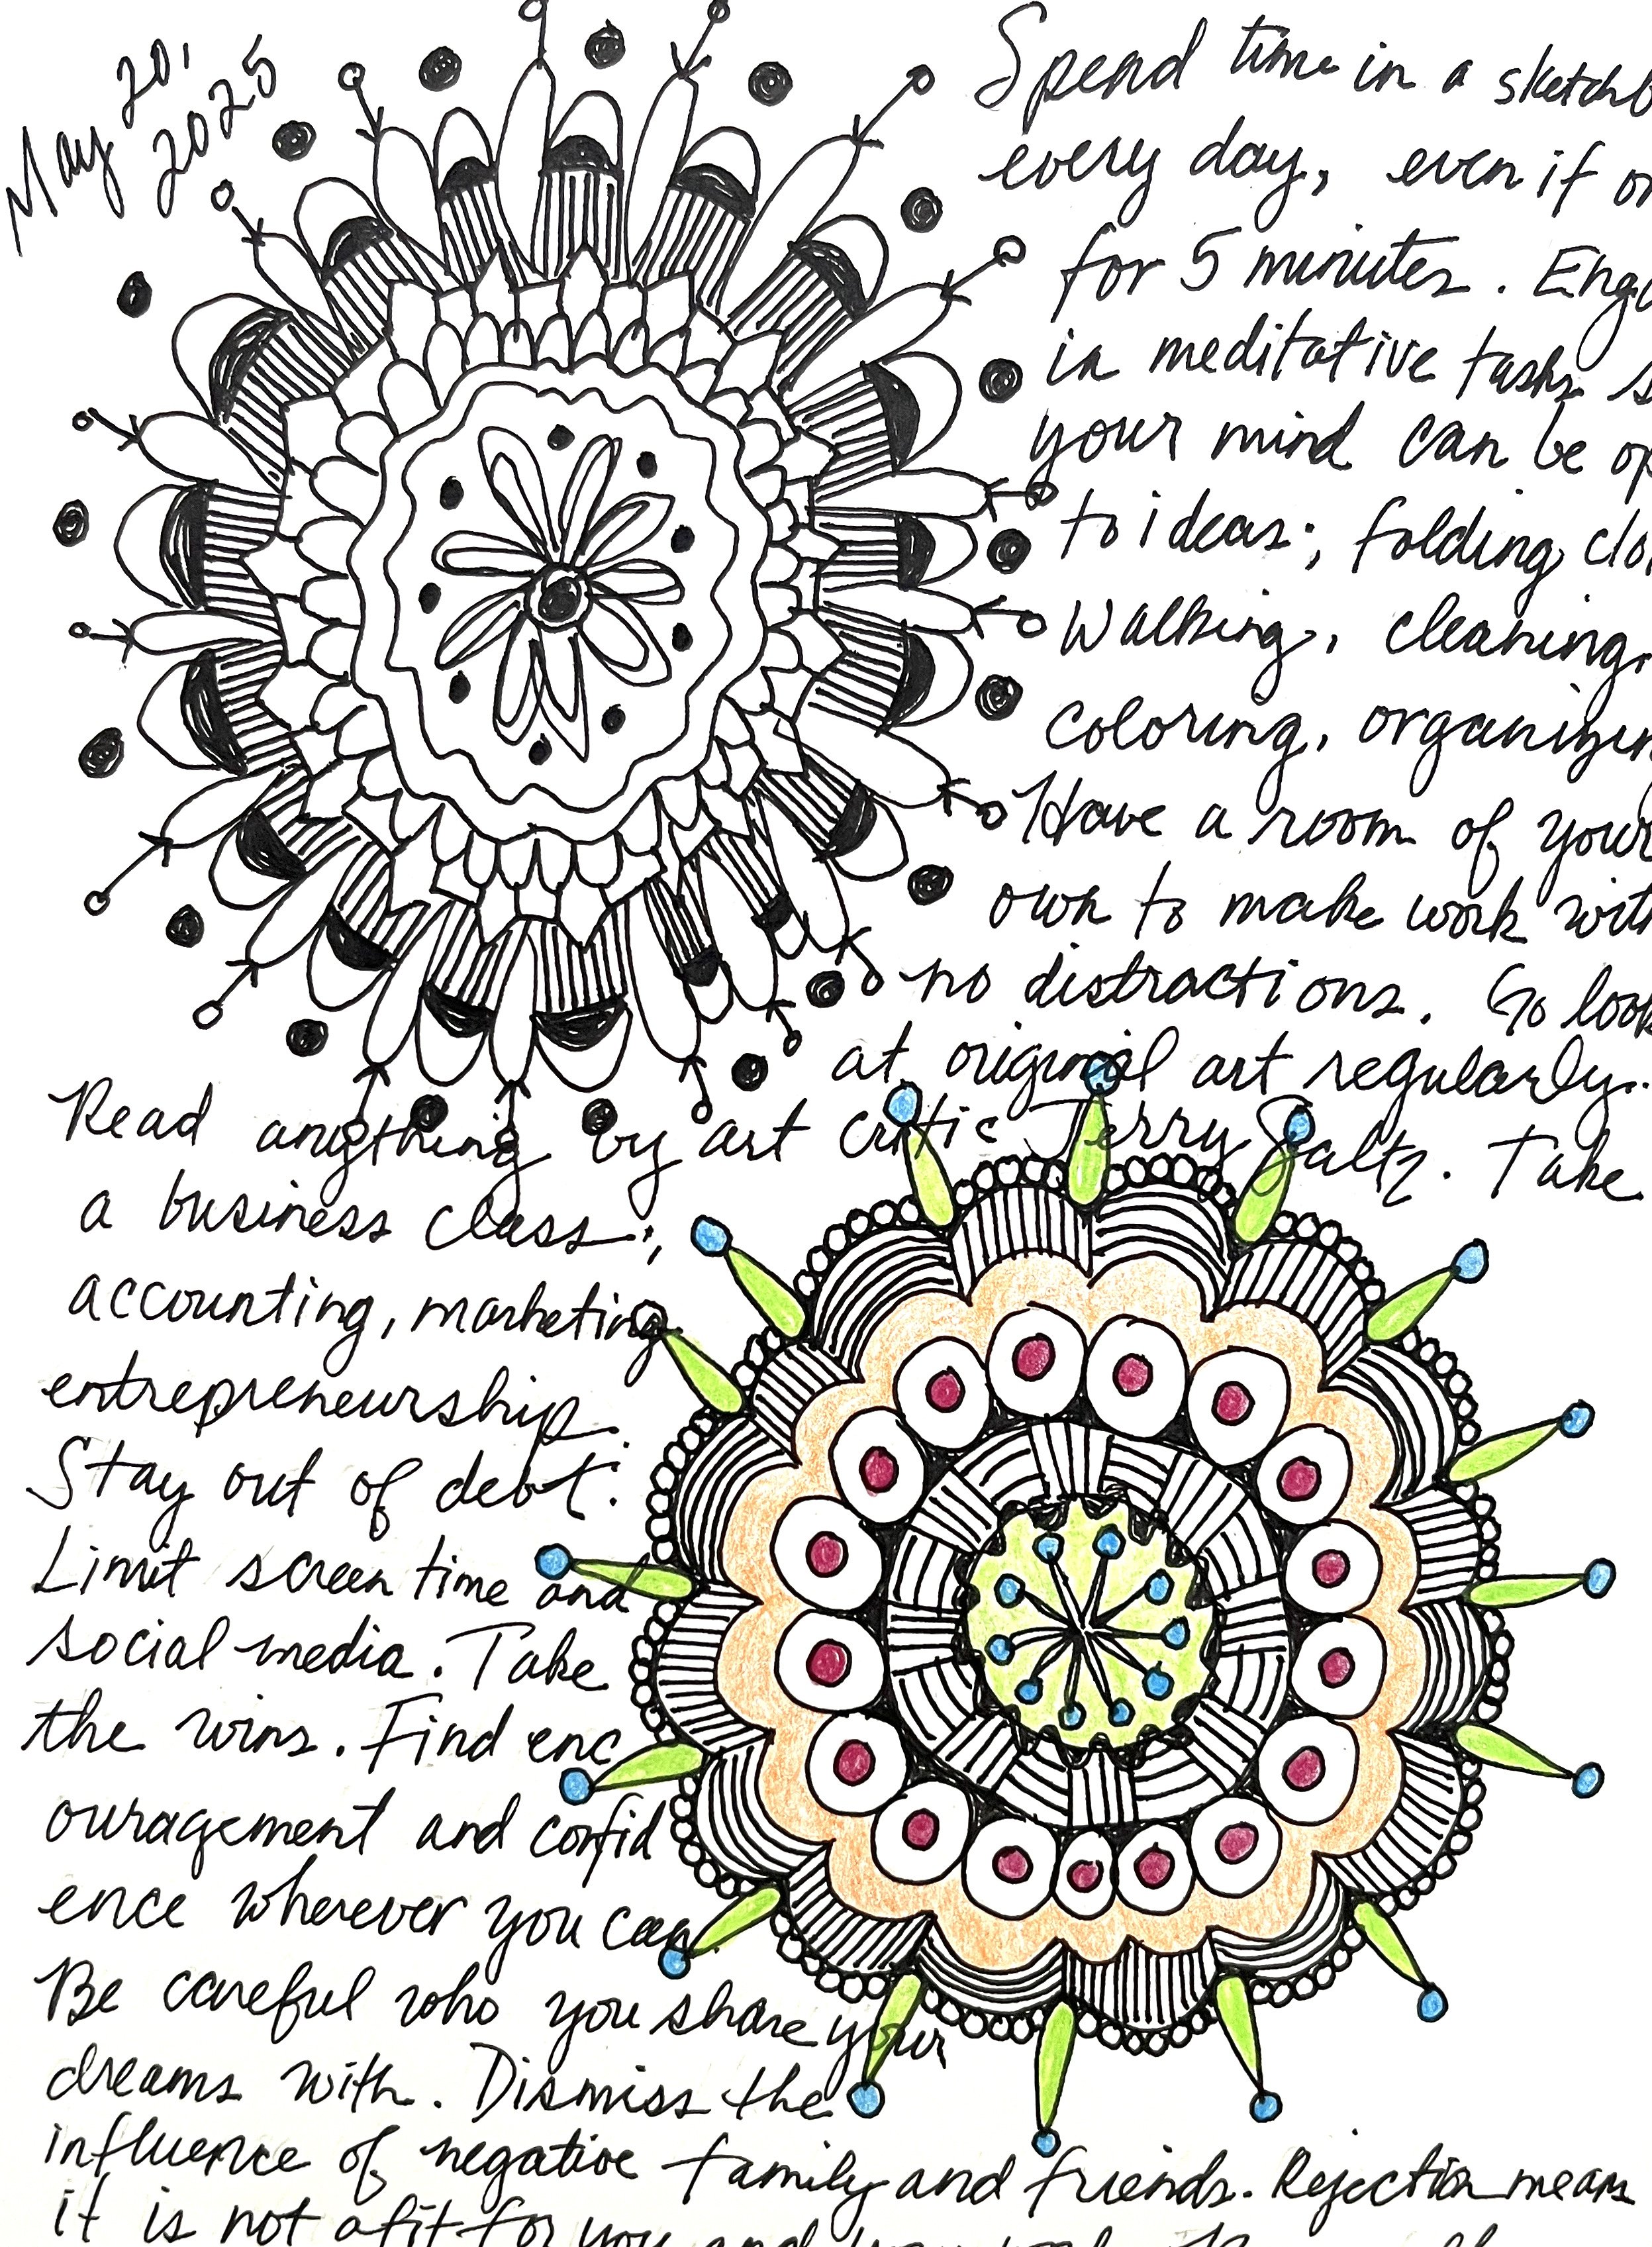 May 20,
2025
Spend time in a sketchb
every day, even if on
for 5 minutes. Enga
in meditative tasks s
your mind can be op
to ideas; folding clo
Walking, cleaning,
coloring, organizin
Have a room of your
own to make work with
no distractions. Go look
at original art regularly.
Read anything by art critic Jerry Saltz. Take
a business class;
accounting, marketing
entrepreneurship.
Stay out of debt.
Limit screen time and
social media. Take
the wins. Find enc
ouragement and confid
ence wherever you can.
Be careful who you share your
dreams with. Dismiss the
influence of negative family and friends. Rejection means
it is not a fit for you and